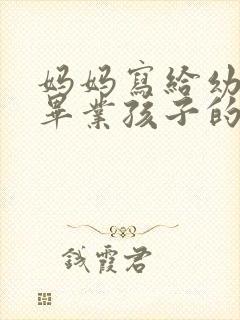 妈妈寫給幼
畢業孩子的
錢霞君